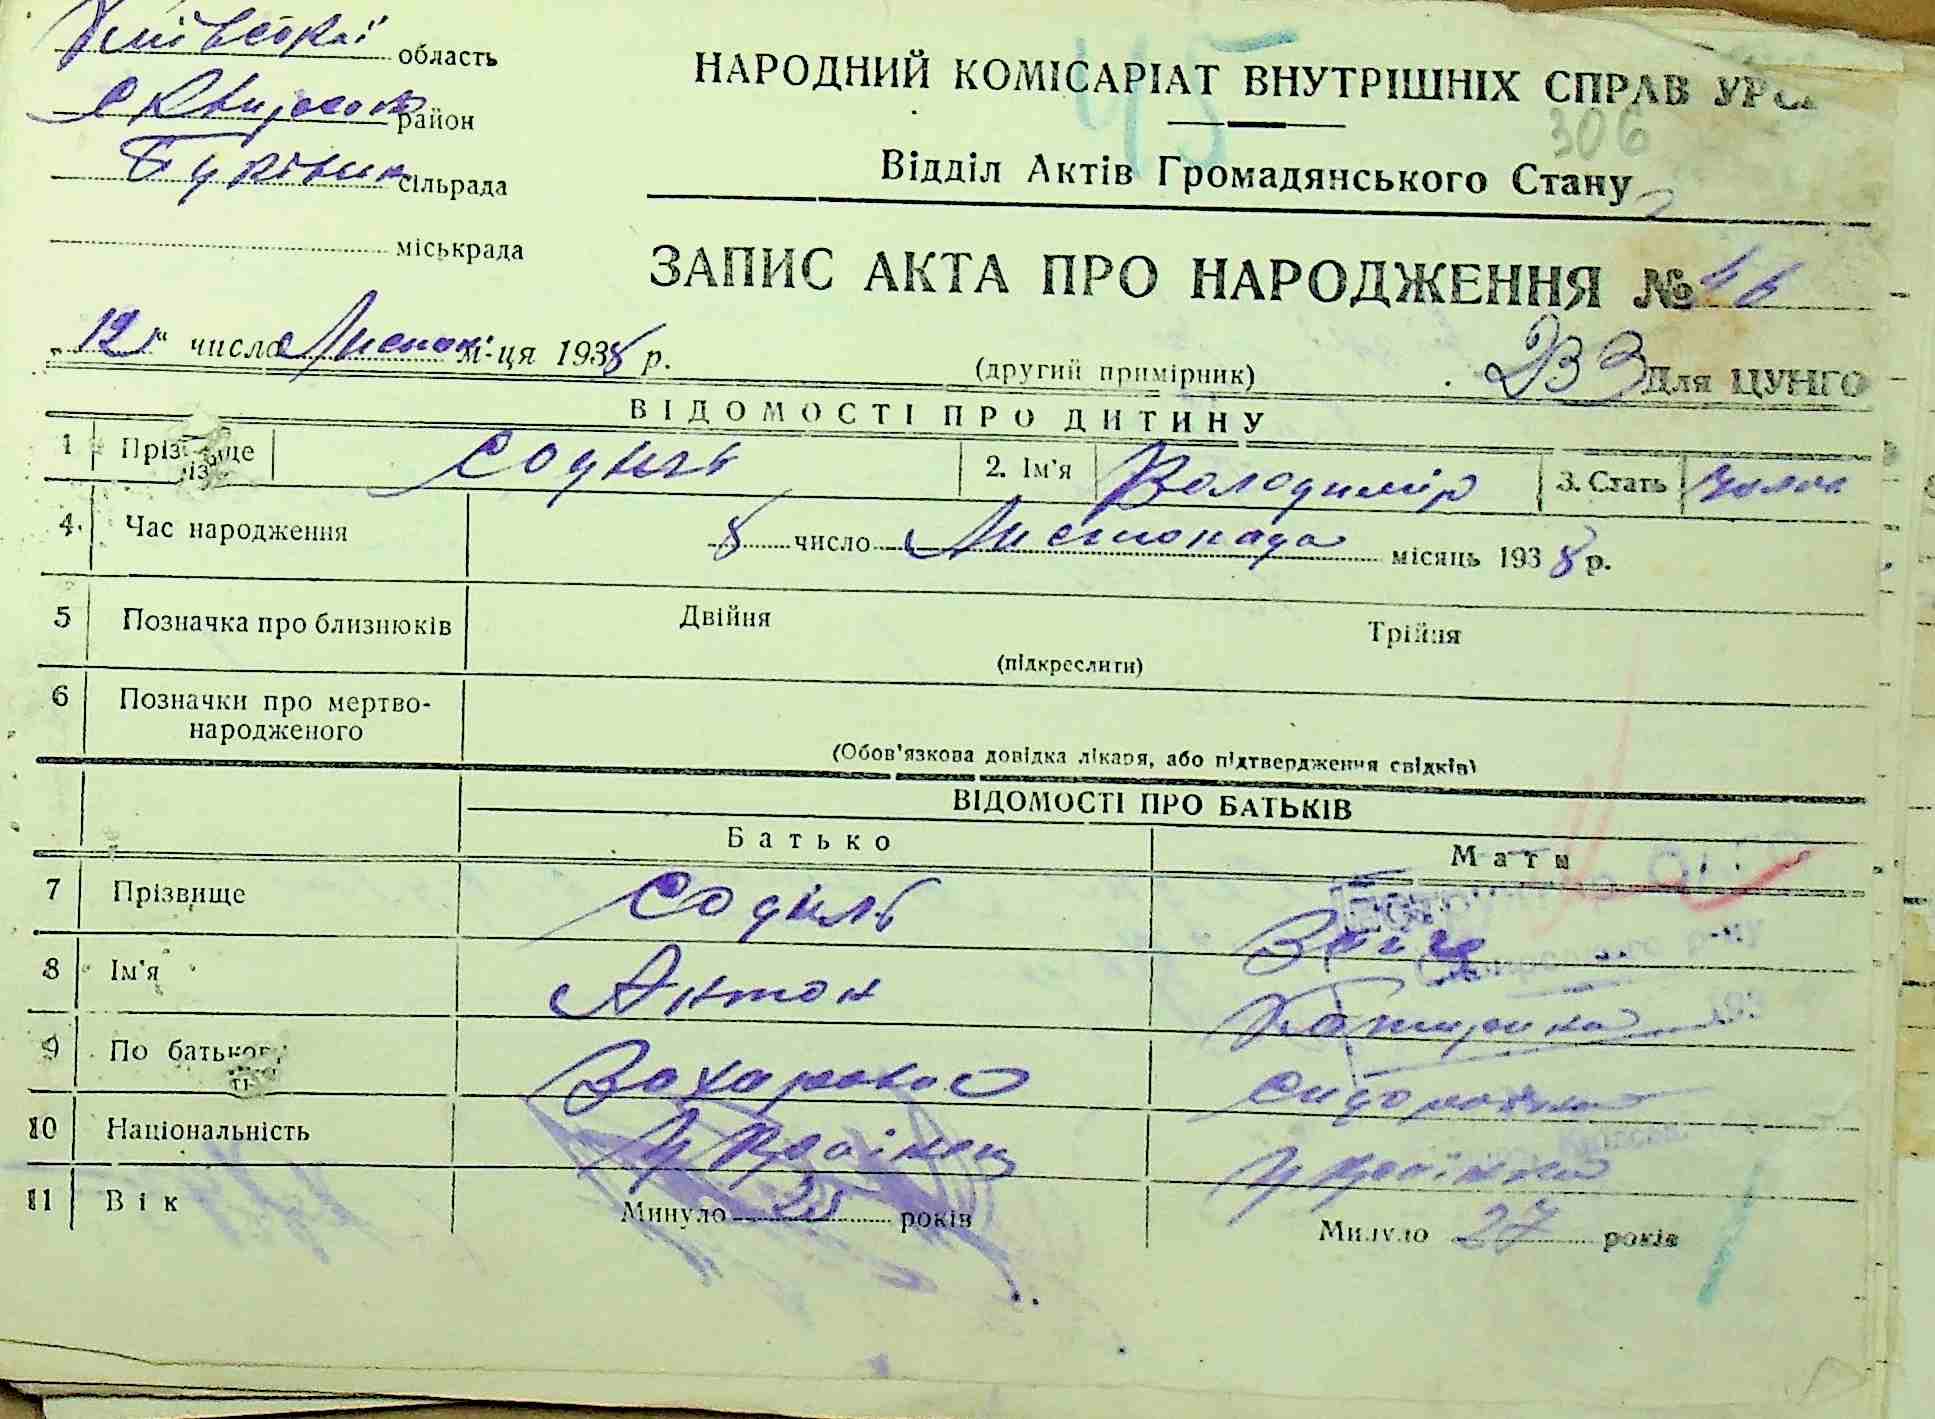 Київської область
Сквирськ район
Буківськ сільрада
міськрада
НАРОДНИЙ КОМІСАРІАТ ВНУТРІШНІХ СПРАВ УРСР
45
306
Відділ Актів Громадянського Стану
ЗАПИС АКТА ПРО НАРОДЖЕННЯ № 46
„12" числа Листоп м-ця 1938 р.
(другий примірник)
233 Для ЦУНГО
ВІДОМОСТІ ПРО ДИТИНУ
1 Прізвище Содиль 2. Ім'я Володимір 3. Стать
4. Час народження 8 число Листопада місяць 1938 р.
5 Позначка про близнюків Двійня Трійня
(підкреслити)
6 Позначки про мертво-
народженого
(Обов'язкова довідка лікаря, або підтвердження свідків)
ВІДОМОСТІ ПРО БАТЬКІВ
Батько Мати
7 Прізвище Содиль
8 Ім'я Антон Катирина
9 По батькові Захарович Сидоровна
10 Національність Українец Українка
11 Вік Минуло 25 років Минуло 27 років